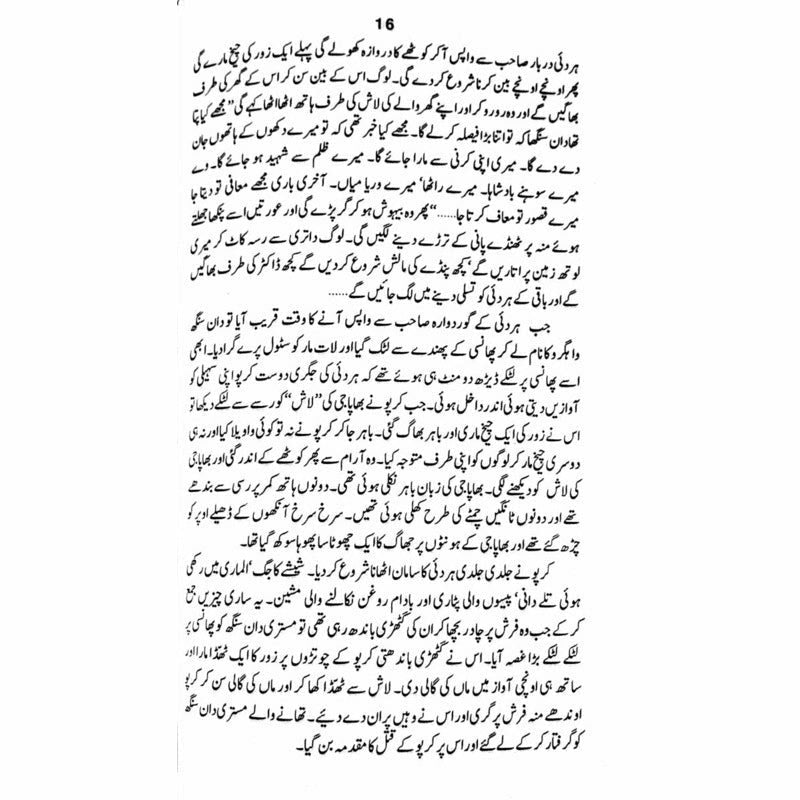 16
ہردئی دربار صاحب سے واپس آ کر کوٹھے کا دروازہ کھولے گی پہلے ایک زور کی چیخ مارے گی
پھر اونچے اونچے بین کرنا شروع کر دے گی۔ لوگ اس کے بین سن کر اس کے گھر کی طرف
بھاگیں گے اور وہ رو رو کر اور اپنے گھر والے کی لاش کی طرف ہاتھ اٹھا اٹھا کہے گی ”مجھے کیا پتا
تھا دان سنگھا کہ تو اتنا بڑا فیصلہ کر لے گا۔ مجھے کیا خبر تھی کہ تو میرے دکھوں کے ہاتھوں جان
دے دے گا۔ میری اپنی کرنی سے مارا جائے گا۔ میرے ظلم سے شہید ہو جائے گا۔ وے
میرے سوہنے بادشاہا۔ میرے رانجھا‘ میرے وریا میاں۔ آخری باری مجھے معافی تو دیتا جا
میرے قصور تو معاف کرتا جا......“ پھر وہ بیہوش ہو کر گر پڑے گی اور عورتیں اسے پنکھا جھلتے
ہوئے منہ پر ٹھنڈے پانی کے ترڑے دینے لگیں گی۔ لوگ داتری سے رسہ کاٹ کر میری
لوتھ زمین پر اتاریں گے‘ کچھ پنڈے کی مالش شروع کر دیں گے کچھ ڈاکٹر کی طرف بھاگیں
گے اور باقی کے ہردئی کو تسلی دینے میں لگ جائیں گے......
جب ہردئی کے گوردوارہ صاحب سے واپس آنے کا وقت قریب آیا تو دان سنگھ
واہگرو کا نام لے کر پھانسی کے پھندے سے لٹک گیا اور لات مار کو سٹول پرے گرا دیا۔ ابھی
اسے پھانسی پر لٹکے ڈیڑھ دو منٹ ہی ہوئے تھے کہ ہردئی کی جگری دوست کرپو اپنی سہیلی کو
آوازیں دیتی ہوئی اندر داخل ہوئی۔ جب کرپو نے بھاپا جی کی ”لاش“ کو رسے سے لٹکے دیکھا تو
اس نے زور کی ایک چیخ ماری اور باہر بھاگ گئی۔ باہر جا کر کرپو نے نہ تو کوئی واویلا کیا اور نہ ہی
دوسری چیخ مار کر لوگوں کو اپنی طرف متوجہ کیا۔ وہ آرام سے پھر کوٹھے کے اندر گئی اور بھاپا جی
کی لاش کو دیکھنے لگی۔ بھاپا جی کی زبان باہر نکلی ہوئی تھی۔ دونوں ہاتھ کمر پر رسی سے بندھے
تھے اور دونوں ٹانگیں چمٹے کی طرح کھلی ہوئی تھیں۔ سرخ سرخ آنکھوں کے ڈھیلے اوپر کو
چڑھ گئے تھے اور بھاپا جی کے ہونٹوں پر جھاگ کا ایک چھوٹا سا پھوہا سوکھ گیا تھا۔
کرپو نے جلدی جلدی ہردئی کا سامان اٹھانا شروع کر دیا۔ شیشے کا جگ‘ الماری میں رکھی
ہوئی تلے دانی‘ پیسوں والی پٹاری اور بادام روغن نکالنے والی مشین۔ یہ ساری چیزیں جمع
کر کے جب وہ فرش پر چادر بچھا کر ان کی گٹھڑی باندھ رہی تھی تو مستری دان سنگھ کو پھانسی پر
لٹکے لٹکے بڑا غصہ آیا۔ اس نے گٹھڑی باندھتی کرپو کے چوتڑوں پر زور کا ایک ٹھڈا مارا اور
ساتھ ہی اونچی آواز میں ماں کی گالی دی۔ لاش سے ٹھڈا کھا کر اور ماں کی گالی سن کر کرپو
اوندھے منہ فرش پر گری اور اس نے وہیں پران دے دئیے۔ تھانے والے مستری دان سنگھ
کو گرفتار کر کے لے گئے اور اس پر کرپو کے قتل کا مقدمہ بن گیا۔